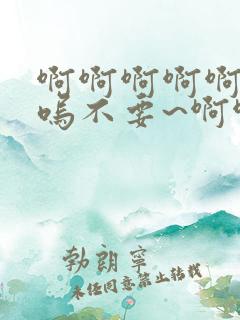 啊啊啊啊啊
呜不要~啊
勃朗宁
未经同意禁止转载